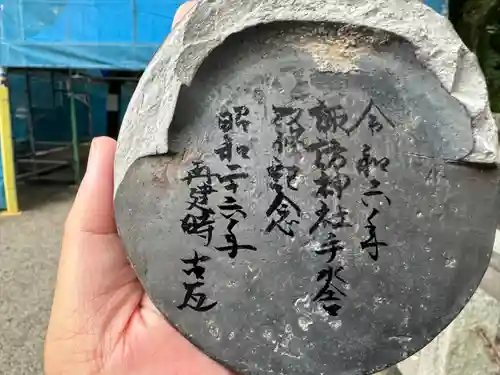 令和六年
諏訪神社手水舎
改修記念
昭和二六年
再建時 古瓦